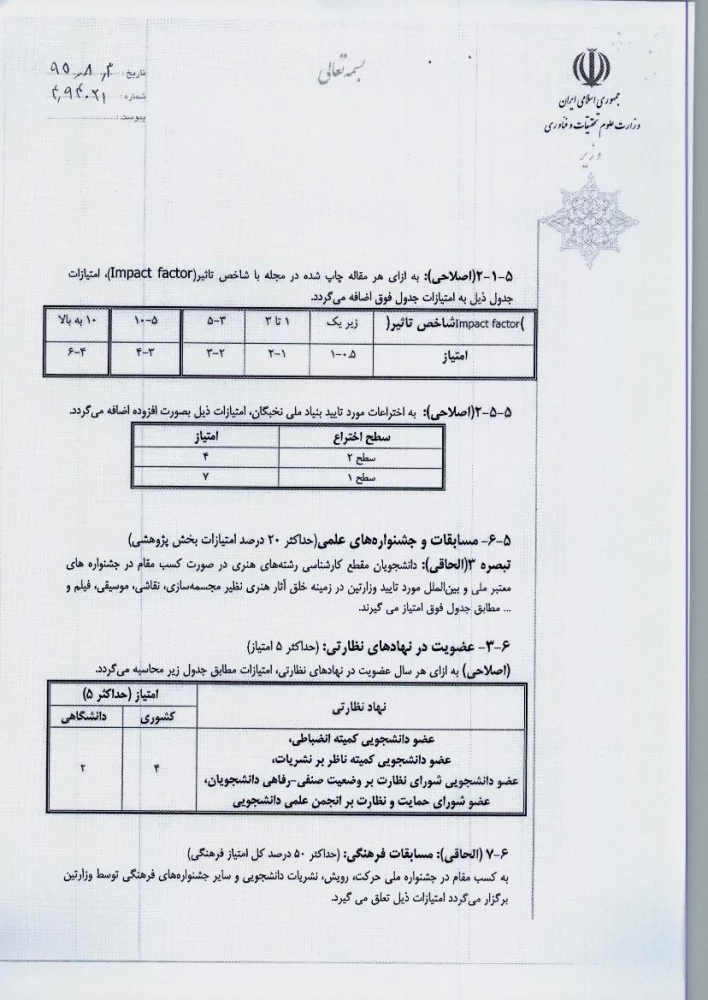 بسمه تعالی
جمهوری اسلامی ایران
وزارت علوم تحقیقات و فناوری
وزیر
تاریخ:
شماره:
پیوست:
۲-۱-۵(اصلاحی): به ازای هر مقاله چاپ شده در مجله با شاخص تاثیر(Impact factor)، امتیازات
جدول ذیل به امتیازات جدول فوق اضافه می‌گردد.
)Impact factorشاخص تاثیر( زیر یک ۱ تا ۳ ۳-۵ ۵-۱۰ ۱۰ به بالا
امتیاز ۰.۵-۱ ۱-۲ ۲-۳ ۳-۴ ۴-۶
۲-۵-۵(اصلاحی): به اختراعات مورد تایید بنیاد ملی نخبگان، امتیازات ذیل بصورت افزوده اضافه می‌گردد.
سطح اختراع امتیاز
سطح ۲ ۴
سطح ۱ ۷
۶-۵- مسابقات و جشنواره‌های علمی(حداکثر ۲۰ درصد امتیازات بخش پژوهشی)
تبصره ۳(الحاقی): دانشجویان مقطع کارشناسی رشته‌های هنری در صورت کسب مقام در جشنواره های
معتبر ملی و بین‌الملل مورد تایید وزارتین در زمینه خلق آثار هنری نظیر مجسمه‌سازی، نقاشی، موسیقی، فیلم و
... مطابق جدول فوق امتیاز می گیرند.
۳-۶- عضویت در نهادهای نظارتی: (حداکثر ۵ امتیاز)
(اصلاحی) به ازای هر سال عضویت در نهادهای نظارتی، امتیازات مطابق جدول زیر محاسبه می‌گردد.
نهاد نظارتی امتیاز (حداکثر ۵)
کشوری دانشگاهی
عضو دانشجویی کمیته انضباطی،
عضو دانشجویی کمیته ناظر بر نشریات،
عضو دانشجویی شورای نظارت بر وضعیت صنفی-رفاهی دانشجویان،
عضو شورای حمایت و نظارت بر انجمن علمی دانشجویی
۴ ۲
۷-۶ (الحاقی): مسابقات فرهنگی: (حداکثر ۵۰ درصد کل امتیاز فرهنگی)
به کسب مقام در جشنواره ملی حرکت، رویش، نشریات دانشجویی و سایر جشنواره‌های فرهنگی توسط وزارتین
برگزار می‌گردد امتیازات ذیل تعلق می گیرد.